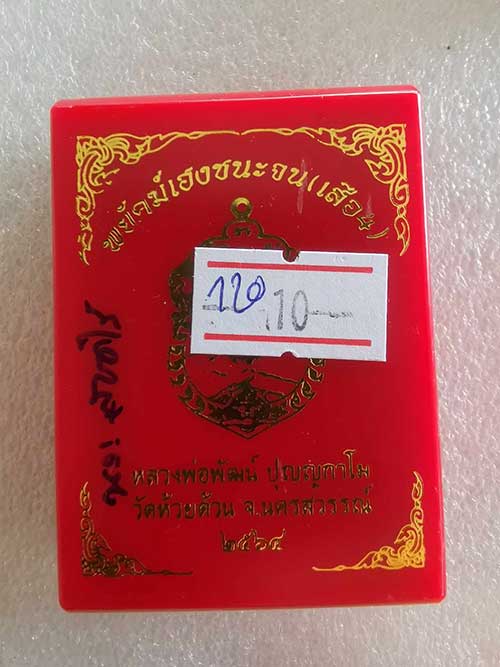 พยัคฆ์เฮงชนะจน(เสือ4)
120
10
หลวงพ่อพัฒน์ ปุญญกาโม
วัดห้วยด้วน จ.นครสวรรค์
๒๕๖๔